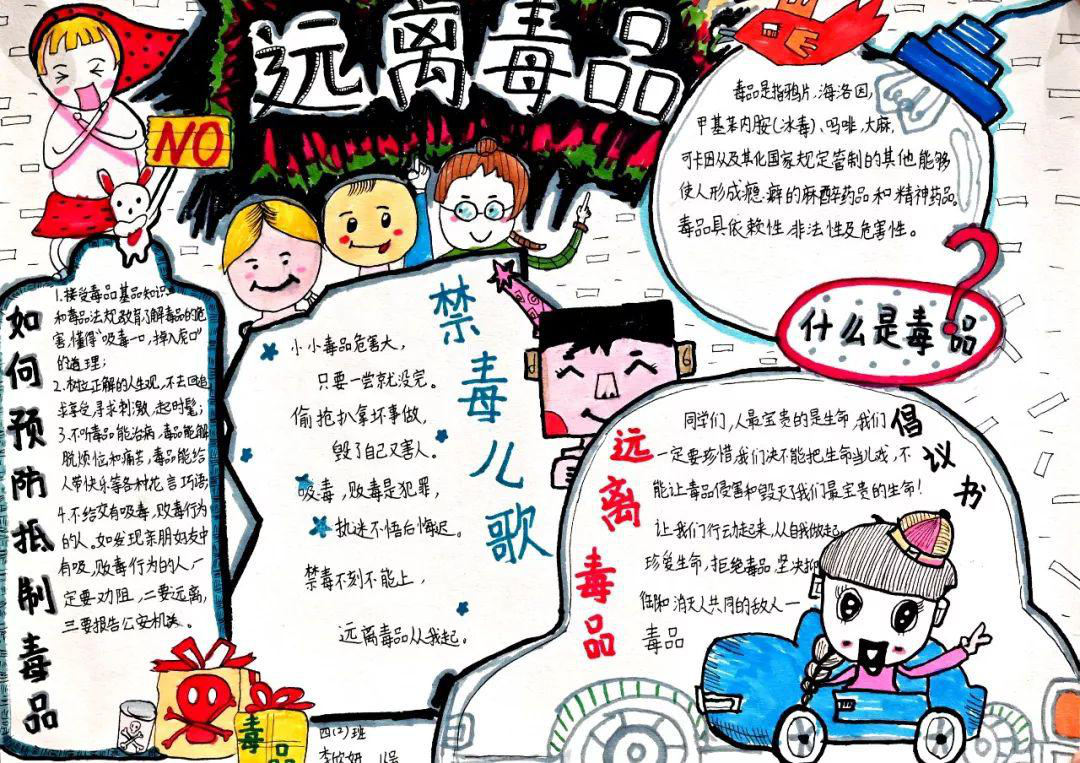 远离毒品
NO
毒品是指鸦片,海洛因,
甲基苯丙胺(冰毒)、吗啡,大麻,
可卡因以及其他国家规定管制的其他能够
使人形成瘾癖的麻醉药品和精神药品。
毒品具依赖性,非法性及危害性。
什么是毒品?
如何预防抵制毒品
1.接受毒品基品知识
和毒品法规教育,了解毒品的危
害,懂得"吸毒一口,掉入虎口"
的道理;
2.树立正解的人生观,不去
享受寻求刺激,赶时髦;
3.不听毒品能治病,毒品能解
脱烦恼和痛苦,毒品能给
人带快乐等各种花言巧语;
4.不给交有吸毒,败毒行为
的人。如发现亲朋好友中
有吸,败毒行为的人,一
定要劝阻,二要远离,
三要报告公安机关。
禁毒儿歌
小小毒品危害大,
只要一尝就没完。
偷抢扒拿坏事做,
毁了自己又害人。
吸毒,败毒是犯罪,
执迷不悟后悔迟。
禁毒不刻不能上,
远离毒品从我起。
倡议书
远离毒品
同学们,人最宝贵的是生命,我们
一定要珍惜我们决不能把生命当儿戏,不
能让毒品侵害和毁灭了我们最宝贵的生命!
让我们行动起来,从自我做起
珍爱生命,拒绝毒品,坚决抑
和消灭人共同的敌人一
毒品
毒品
四(3)班
李欣妍